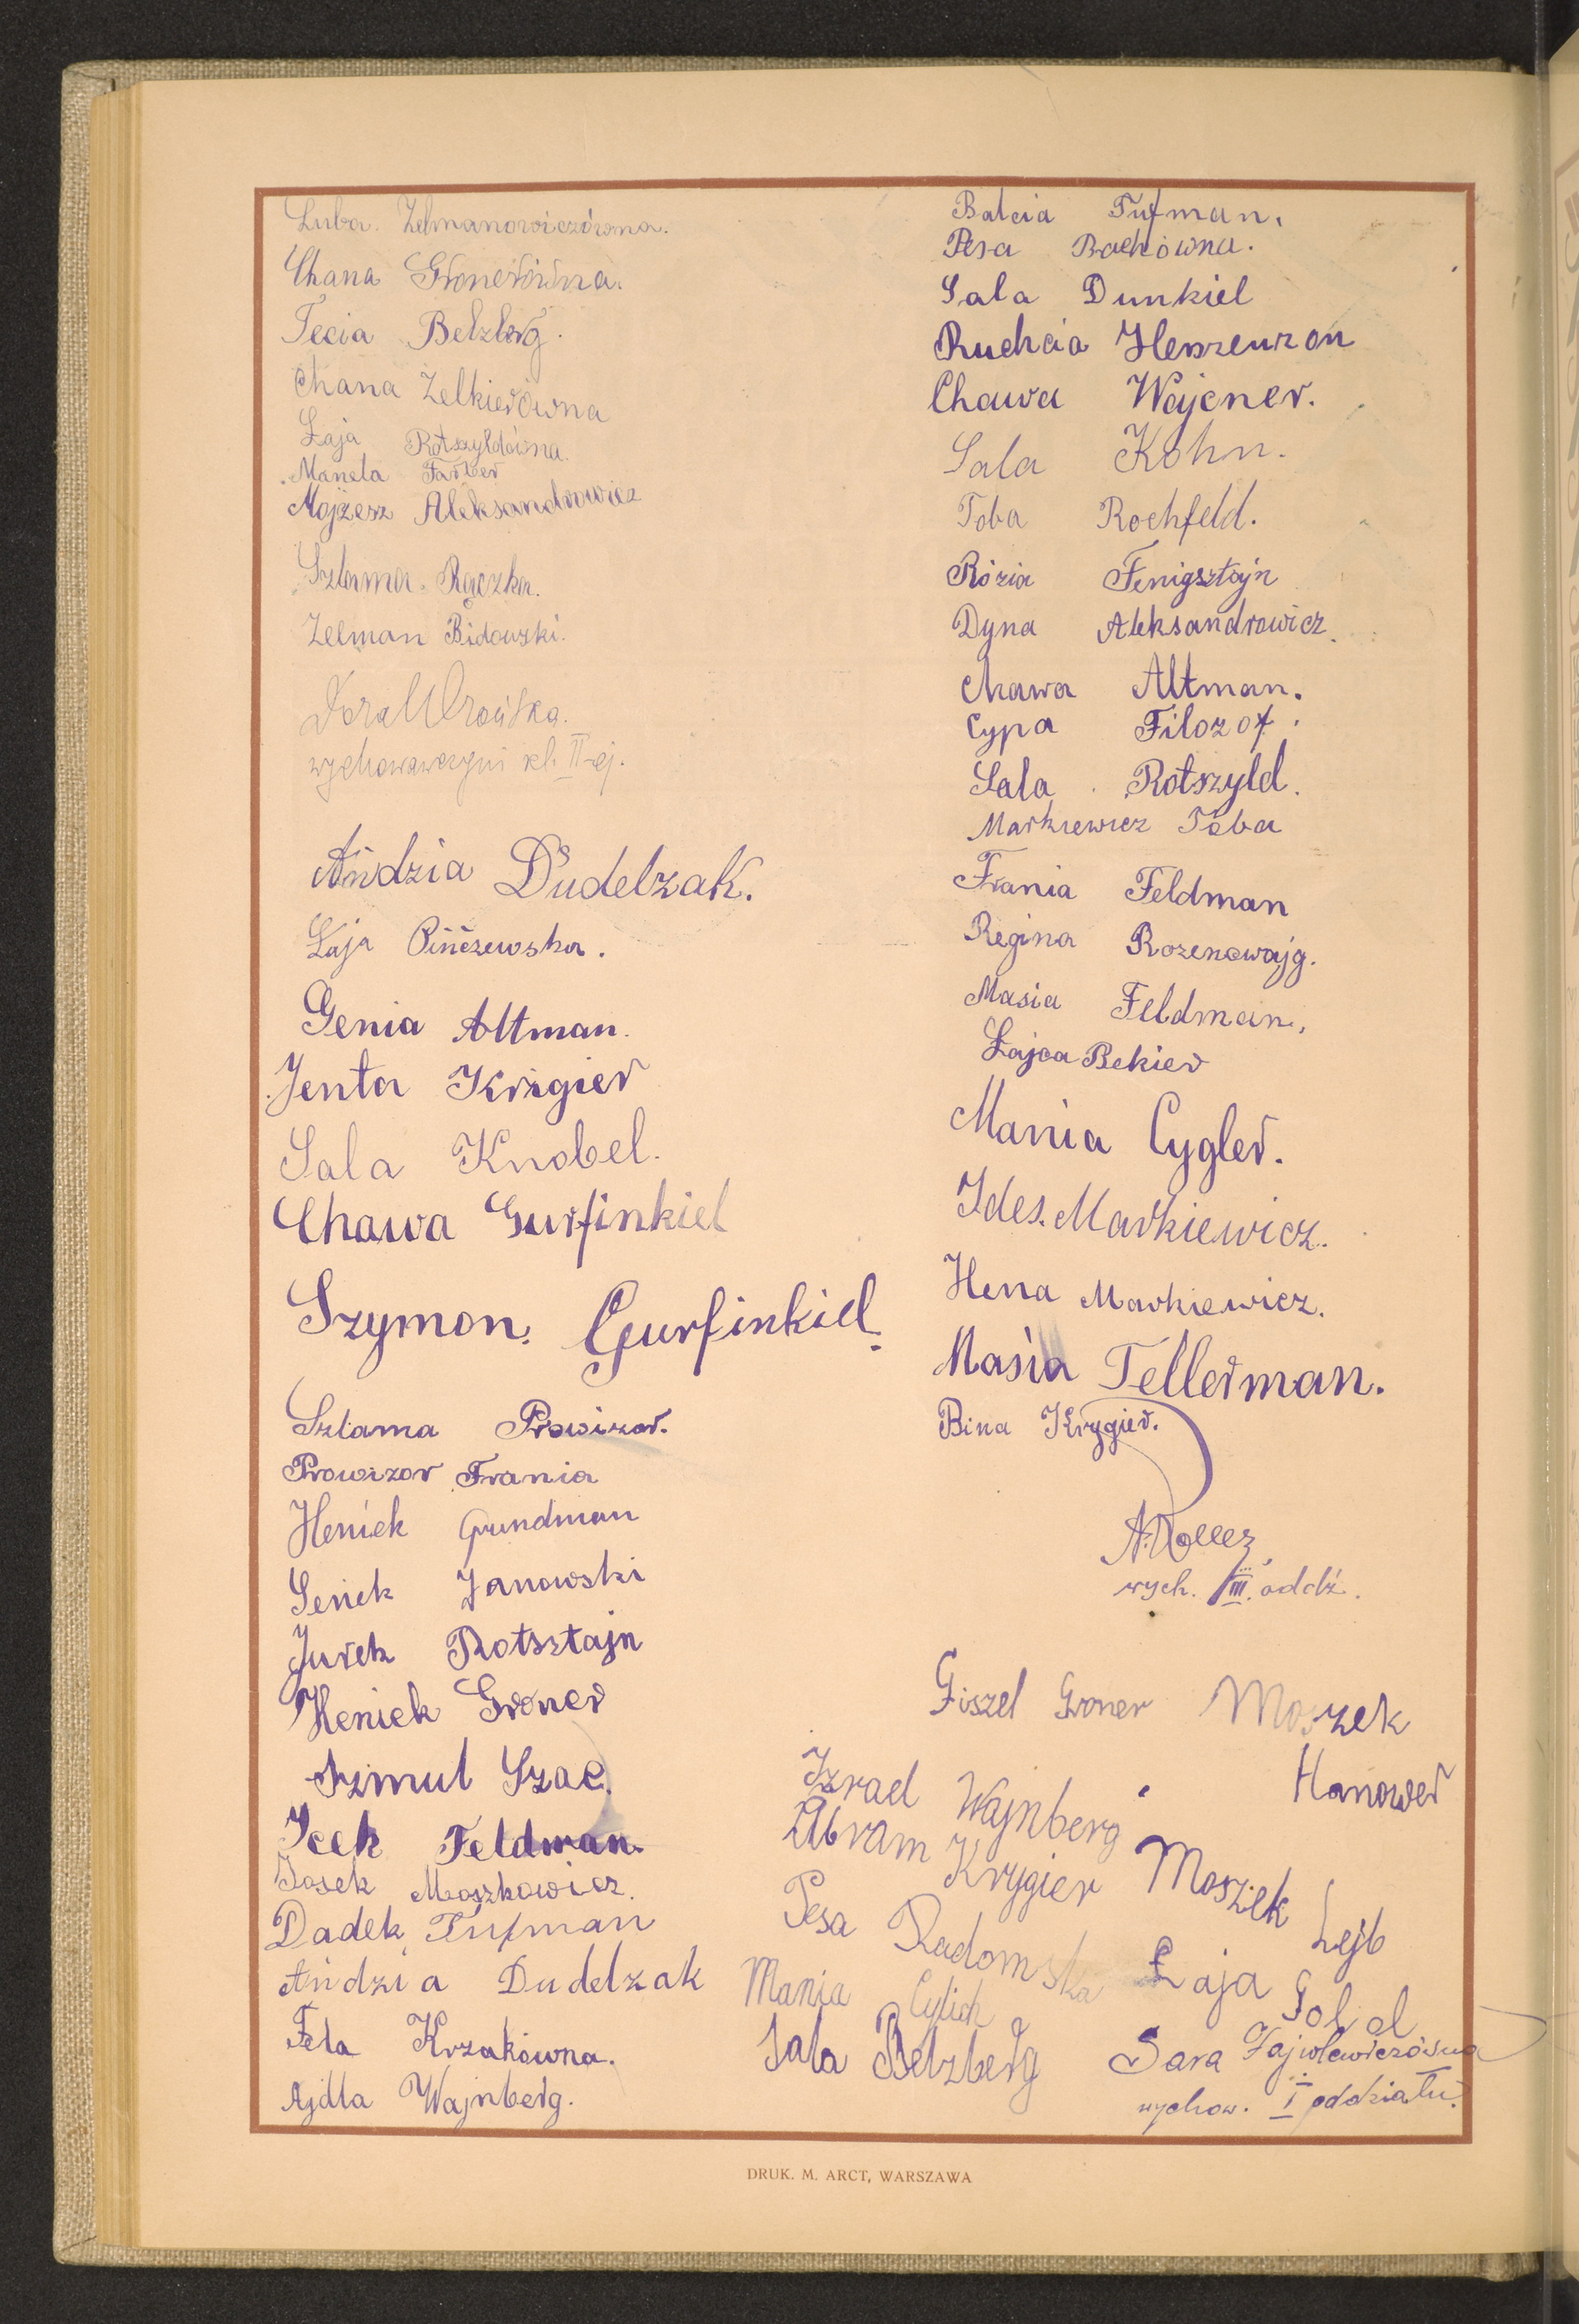 Luba. Zelmanowiczówna.
Chana Gronerówna.
Tecia Belzberg.
Chana Zelkierówna
Łaja Rotszyldówna.
Manela Farber
Mojżesz Aleksandrowicz
Szlama. Rączka.
Zelman Bidowski.
Dora Wrońska.
wychowawczyni kl. II-ej.
Andzia Dudelzak.
Łaja Pińczewska.
Genia Altman.
Jenta Krigier
Sala Knobel.
Chawa Gurfinkiel
Szymon. Gurfinkiel.
Szlama Prowizor.
Prowizor Frania
Heniek Grundman
Seniek Janowski
Jurek Rotsztajn
Heniek Groner
Szmul Szac.
Icek Feldman.
Josek Moszkowicz.
Dadek Tufman
Andzia Dudelzak
Fela Krzakówna.
Ajdla Wajnberg.
Balcia Tufman.
Pesa Bachówna.
Sala Dunkiel
Ruchcia Herszenzon
Chawa Wajcner.
Sala Kohn.
Toba Rochfeld.
Rózia Fenigsztajn
Dyna Aleksandrowicz.
Chawa Altman.
Cypa Filozof.
Sala Rotszyld.
Markiewicz Toba
Frania Feldman
Regina Rozencwajg.
Masia Feldman.
Łajca Bekier
Mania Cygler.
Ides. Markiewicz.
Hena Markiewicz.
Masia Tellerman.
Bina Krygier.
wych. III. oddź.
Fiszel Groner Moszek
Hanower
Izrael Wajnberg
Abram Krygier Moszek Lejb
Pesa Radomska Łaja Gold
Mania Cylich
Sala Belzberg Sara Fajwlewiczówna
wychow. I oddziału.
DRUK. M. ARCT, WARSZAWA